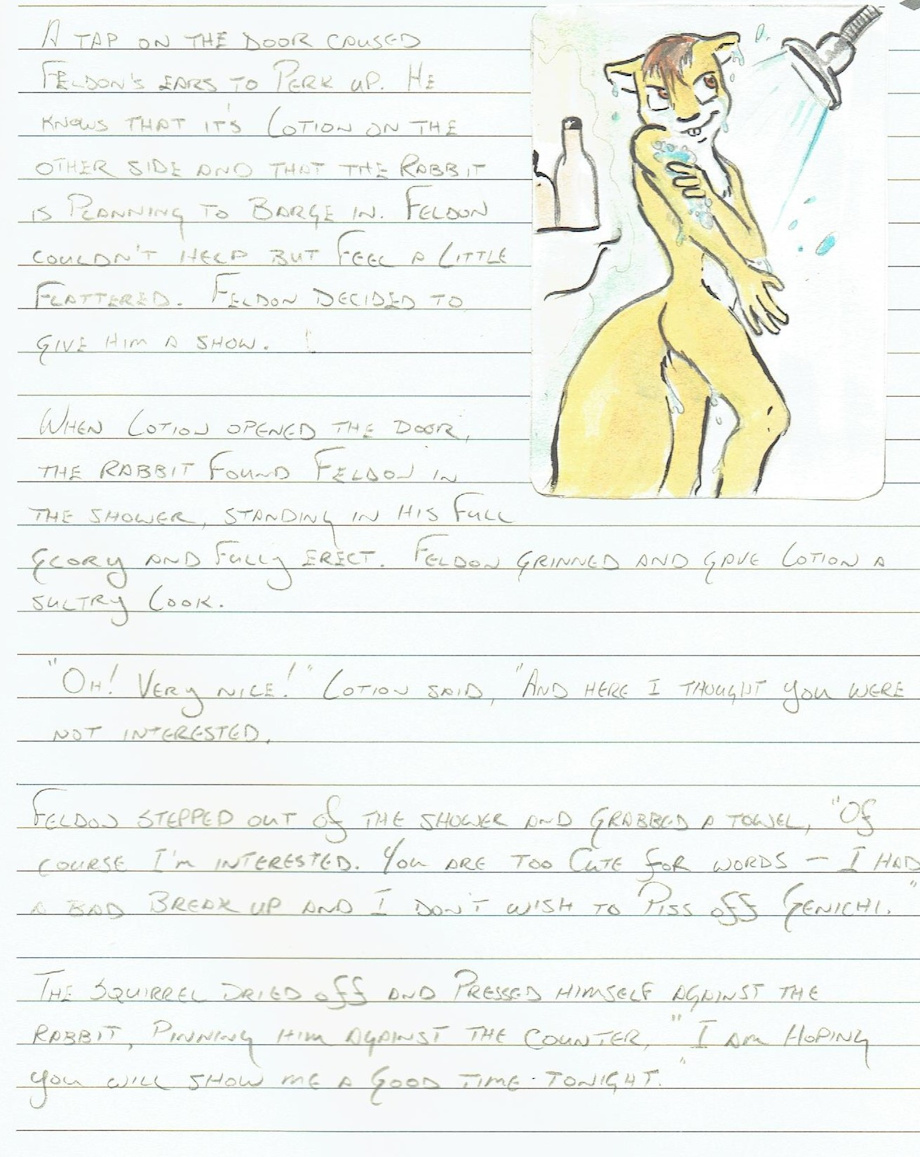 A TAP ON THE DOOR CAUSED
FELDON'S EARS TO PERK UP. HE
KNOWS THAT IT'S LOTION ON THE
OTHER SIDE AND THAT THE RABBIT
IS PLANNING TO BARGE IN. FELDON
COULDN'T HELP BUT FEEL A LITTLE
FLATTERED. FELDON DECIDED TO
GIVE HIM A SHOW.
WHEN LOTION OPENED THE DOOR,
THE RABBIT FOUND FELDON IN
THE SHOWER, STANDING IN HIS FULL
GLORY AND FULLY ERECT. FELDON GRINNED AND GAVE LOTION A
SULTRY LOOK.
"OH! VERY NICE!" LOTION SAID, "AND HERE I THOUGHT YOU WERE
NOT INTERESTED.
FELDON STEPPED OUT OF THE SHOWER AND GRABBED A TOWEL, "OF
COURSE I'M INTERESTED. YOU ARE TOO CUTE FOR WORDS — I HAD
A BAD BREAK UP AND I DON'T WISH TO PISS OFF GENICHI."
THE SQUIRREL DRIED OFF AND PRESSED HIMSELF AGAINST THE
RABBIT, PINNING HIM AGAINST THE COUNTER, "I AM HOPING
YOU WILL SHOW ME A GOOD TIME TONIGHT."